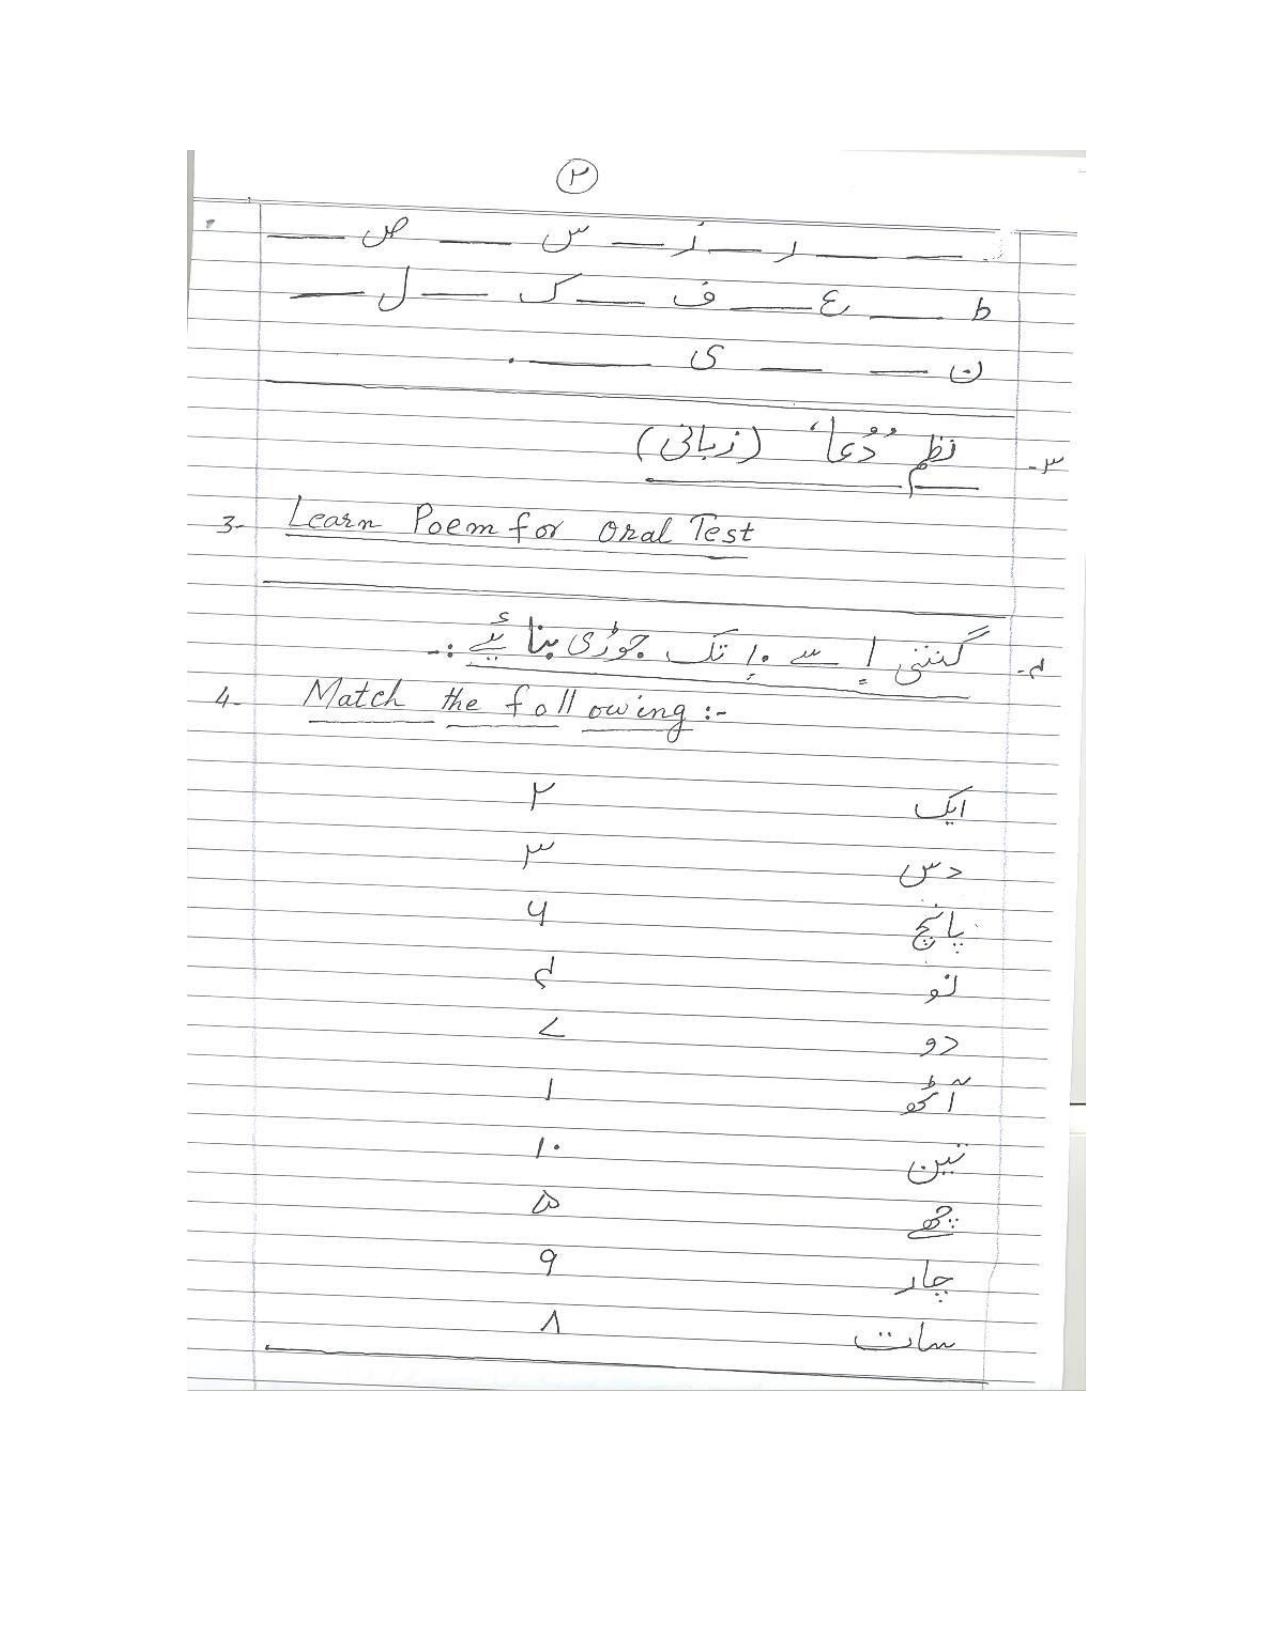 ۲
__ __ ر __ ز __ س __ ص __
ط __ ع __ ف __ ک __ ل __
ن __ __ ی __ ۔
۳- نظم ”دُعا“ (زبانی)
3- Learn Poem for Oral Test
۴- گنتی ۱ سے ۱۰ تک جوڑی بنائیے :-
4- Match the following :-
ایک ۲
دس ۳
پانچ ۶
نو ۴
دو ۷
آٹھ ۱
تین ۱۰
چھے ۵
چار ۹
سات ۸